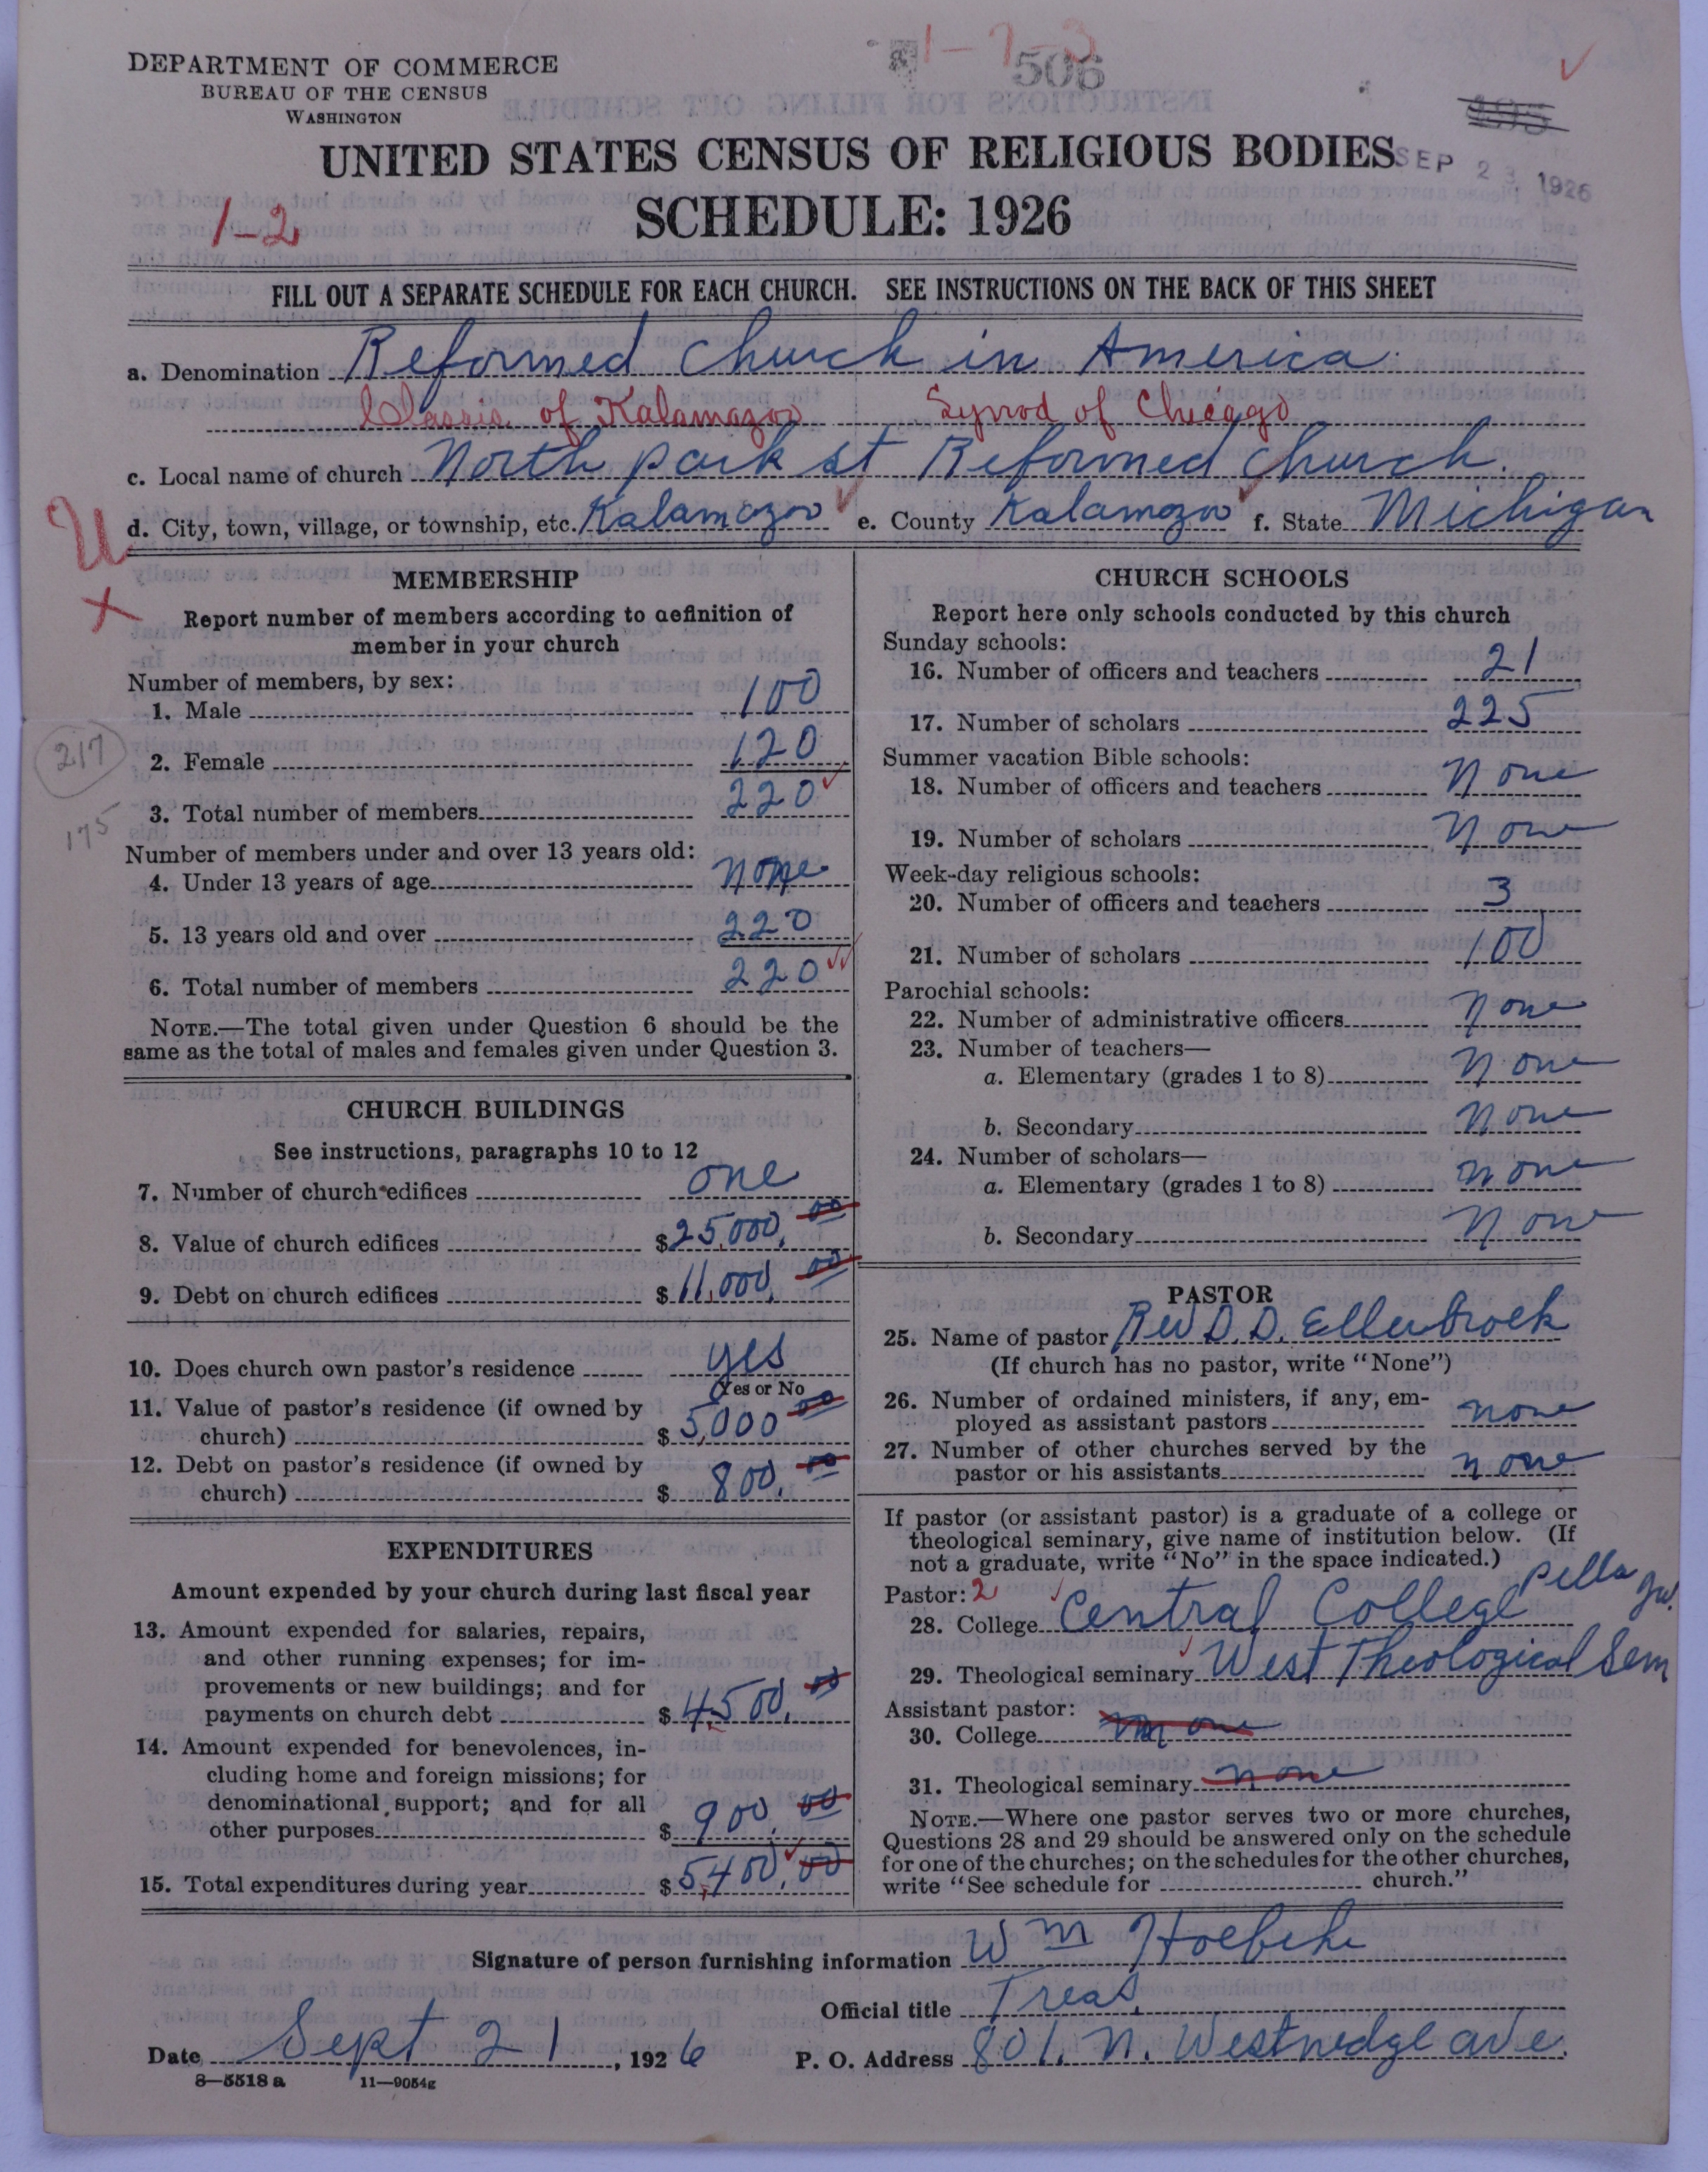 1-7-3
506
DEPARTMENT OF COMMERCE
BUREAU OF THE CENSUS
WASHINGTON
195
UNITED STATES CENSUS OF RELIGIOUS BODIES
SEP 23 1926
1-2
SCHEDULE: 1926
FILL OUT A SEPARATE SCHEDULE FOR EACH CHURCH. SEE INSTRUCTIONS ON THE BACK OF THIS SHEET
a. Denomination Reformed Church in America.
Classis of Kalamazoo Synod of Chicago
c. Local name of church North park st Reformed Church.
d. City, town, village, or township, etc. Kalamazoo e. County Kalamazoo f. State Michigan
U
X
MEMBERSHIP
Report number of members according to definition of
member in your church
Number of members, by sex:
1. Male 100
2. Female 120
217
3. Total number of members 220
175
Number of members under and over 13 years old:
4. Under 13 years of age none
5. 13 years old and over 220
6. Total number of members 220
NOTE.—The total given under Question 6 should be the
same as the total of males and females given under Question 3.
CHURCH BUILDINGS
See instructions, paragraphs 10 to 12
7. Number of church edifices one
8. Value of church edifices $25,000.00
9. Debt on church edifices $11,000.00
10. Does church own pastor's residence yes
Yes or No
11. Value of pastor's residence (if owned by
church) $5,000 00
12. Debt on pastor's residence (if owned by
church) $800.00
EXPENDITURES
Amount expended by your church during last fiscal year
13. Amount expended for salaries, repairs,
and other running expenses; for im-
provements or new buildings; and for
payments on church debt $4500.00
14. Amount expended for benevolences, in-
cluding home and foreign missions; for
denominational support; and for all
other purposes $900.00
15. Total expenditures during year $5,400.00
CHURCH SCHOOLS
Report here only schools conducted by this church
Sunday schools:
16. Number of officers and teachers 21
17. Number of scholars 225
Summer vacation Bible schools:
18. Number of officers and teachers None
19. Number of scholars None
Week-day religious schools:
20. Number of officers and teachers 3
21. Number of scholars 100
Parochial schools:
22. Number of administrative officers None
23. Number of teachers—
a. Elementary (grades 1 to 8) None
b. Secondary None
24. Number of scholars—
a. Elementary (grades 1 to 8) none
b. Secondary None
PASTOR
25. Name of pastor Rev D. D. Ellerbroek
(If church has no pastor, write "None")
26. Number of ordained ministers, if any, em-
ployed as assistant pastors none
27. Number of other churches served by the
pastor or his assistants none
If pastor (or assistant pastor) is a graduate of a college or
theological seminary, give name of institution below. (If
not a graduate, write "No" in the space indicated.)
Pastor: 2
28. College Central College Pella
29. Theological seminary West Theological Sem
Assistant pastor:
30. College none
31. Theological seminary none
NOTE.—Where one pastor serves two or more churches,
Questions 28 and 29 should be answered only on the schedule
for one of the churches; on the schedules for the other churches,
write "See schedule for church."
Signature of person furnishing information Wm Hoebeke
Official title Treas.
Date Sept 21, 1926 P. O. Address 801. N. Westnedge ave.
8—5518 a 11—9054g